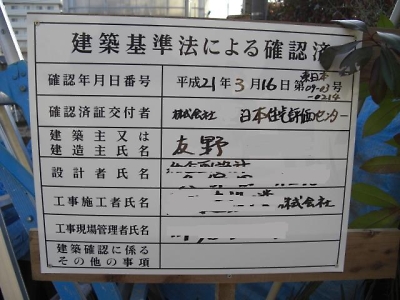 建築基準法による確認済
確認年月日番号 平成21年3月16日第東日本09-03-0214号
確認済証交付者 株式会社 日本住宅評価センター
建築主又は建造主氏名 友野
設計者氏名
工事施工者氏名 株式会社
工事現場管理者氏名
建築確認に係るその他の事項